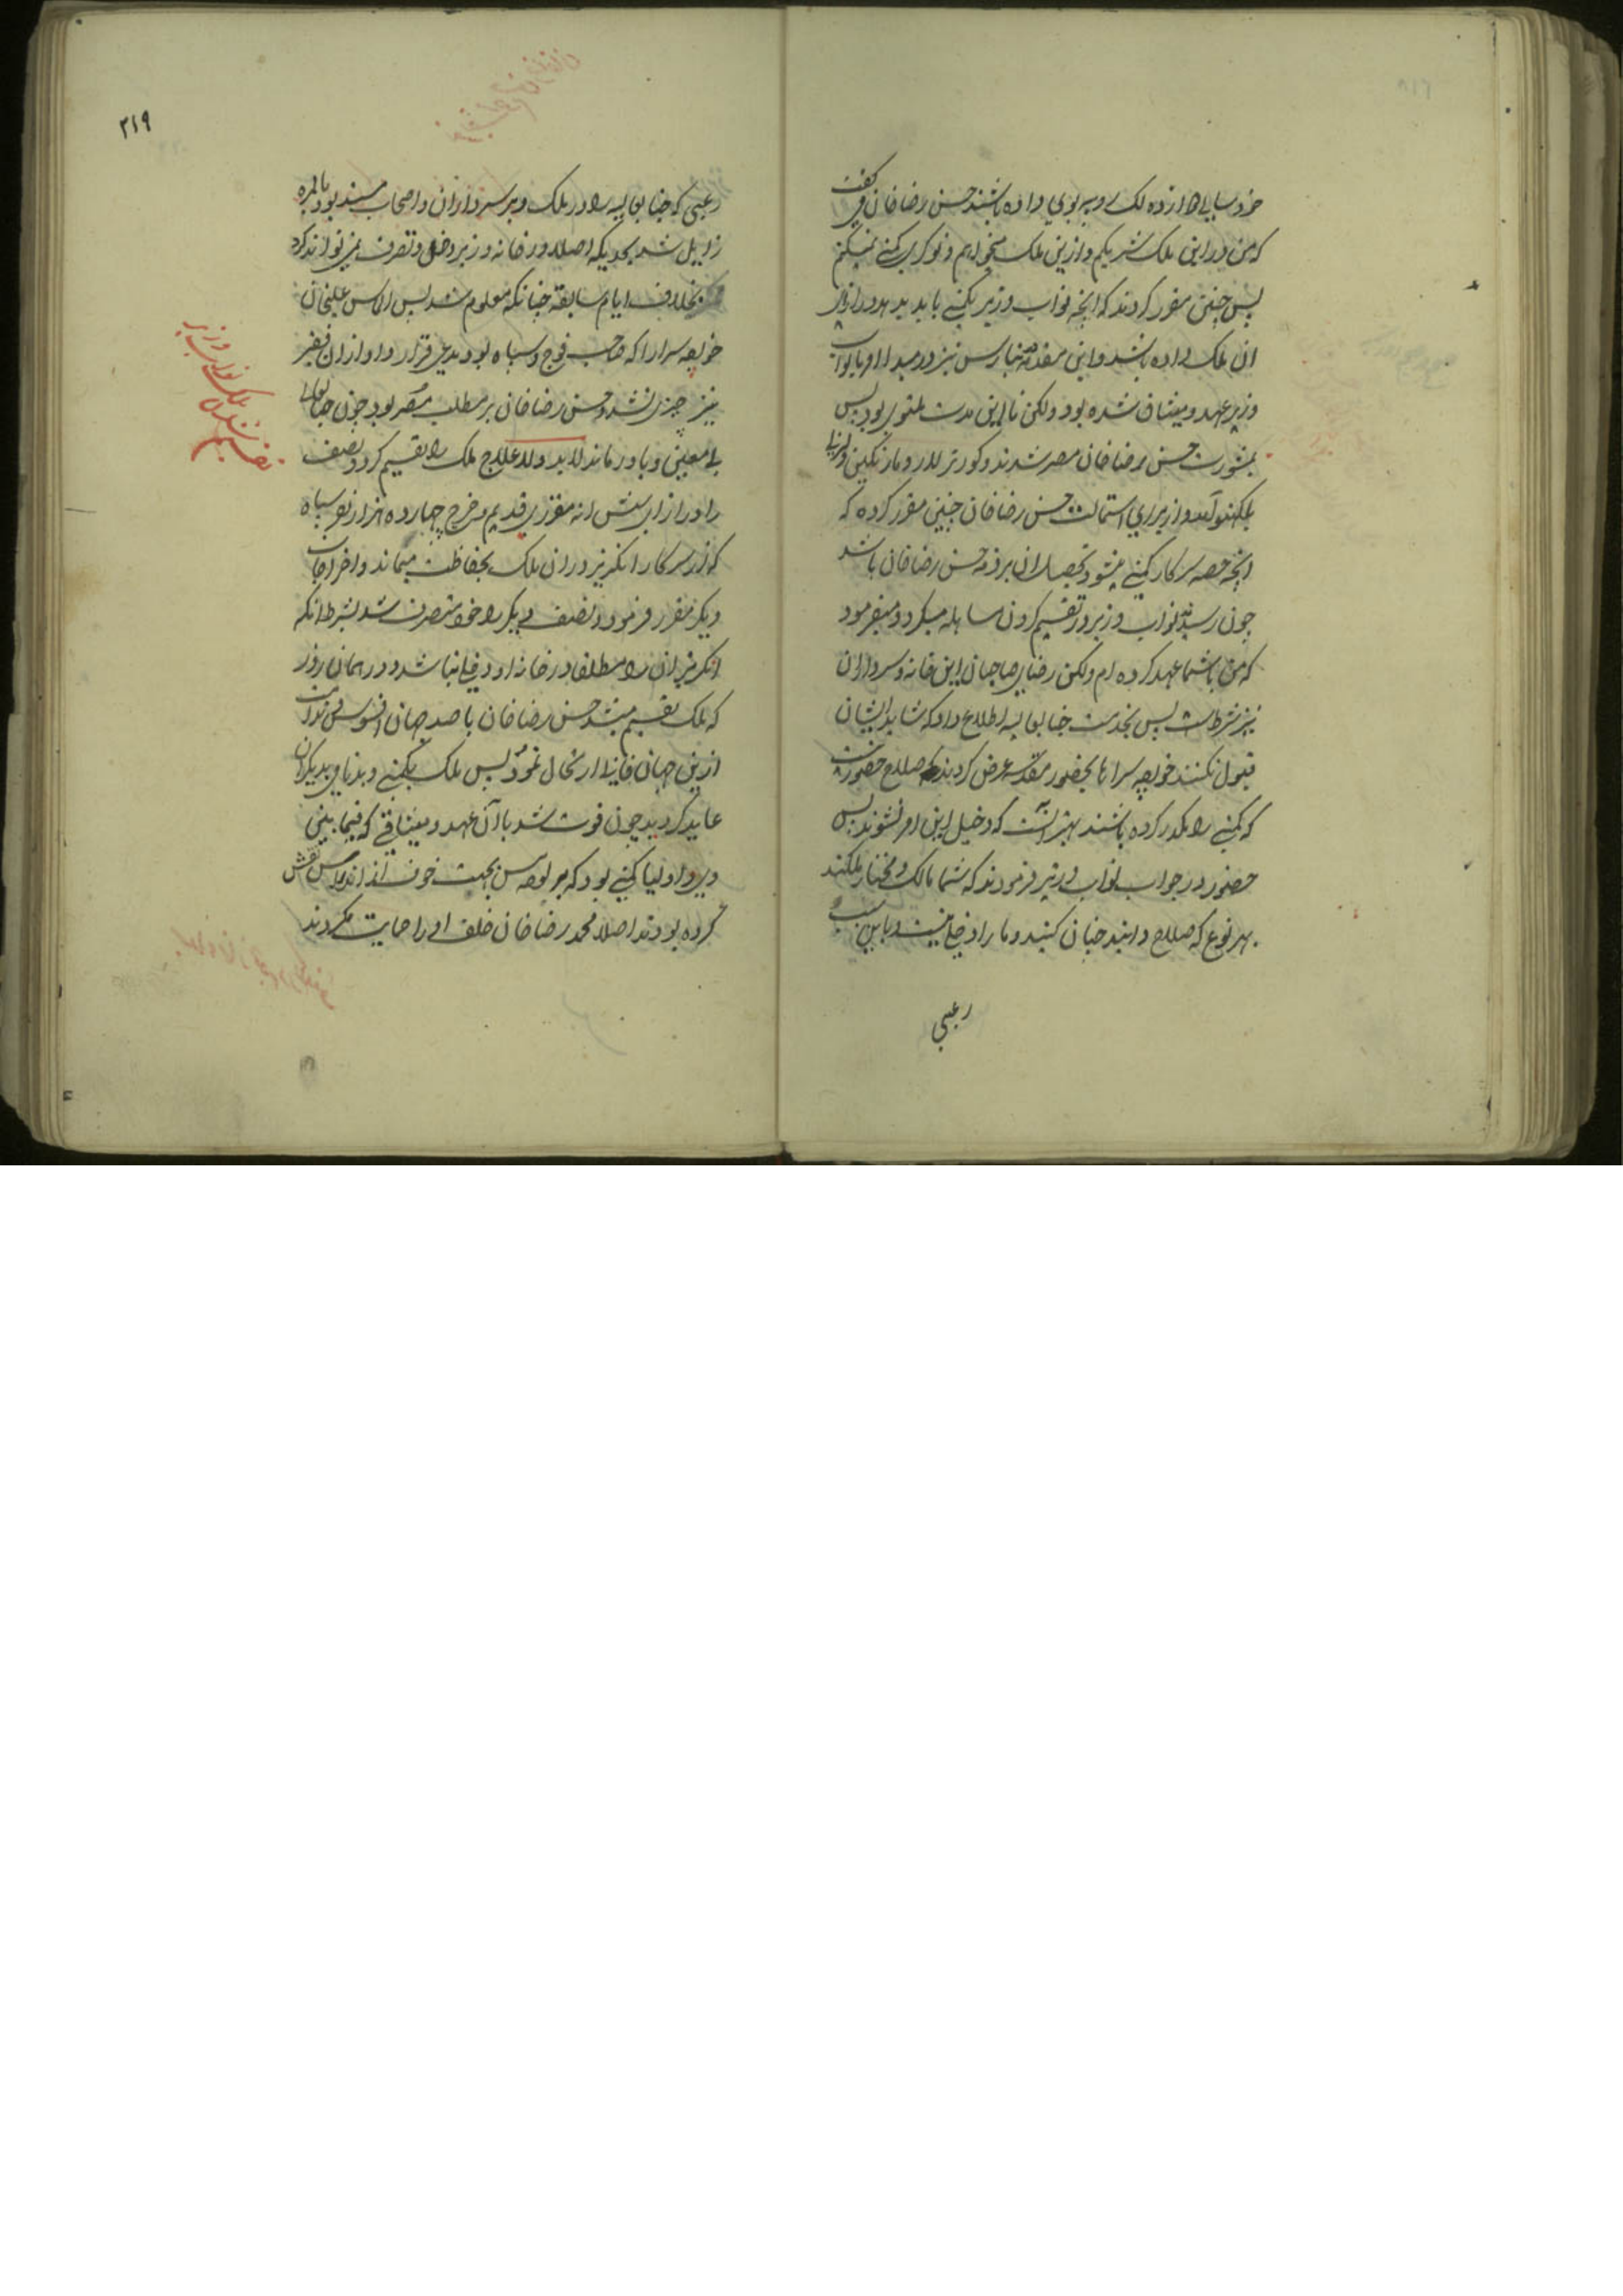 که من در این ملک شریکم و ازین ملک میخواهم و نوکری کمپنی نمیکنم
پس چنین مقرر کردند که آنچه نواب وزیر بکمپنی باید بدهد در ازای
ان ملک داده باشد و این مقدمه بنارس نیز در میان او با نواب
وزیر عهد و میثاق شده بود ولکن تا این مدت ملتوی بود پس
بمشورت حسن رضا خان مصر شدند و کورنر لارد مارنکلین
بلکهنو آمد و از برای استمالت حسن رضا خان چنین مقرر کرده که
آنچه حصه سرکار کمپنی میشود تحصیل ان بر ذمه حسن رضا خان باشد
چون رسید نواب وزیر در تقسیم کردن مساهله میکرد و میفرمود
که من با شما عهد کرده ام ولکن رضای صاحبان این خانه و سرداران
نیز شرطست پس بخدمت جنابعالیه اطلاع داد که شاید ایشان
قبول نکنند خواجه سراها بحضور عرض کردند که صلاح حضور
که کمپنی را مکدر کرده باشند بهتر آنست که دخیل این امر نشوند پس
حضور در جواب نواب وزیر فرمودند که شما مالک و مختار ملکید
بهر نوع که صلاح دانید چنان کنید و ما را دخلی نیست و باین سبب
رعبی
۲۱۹
رعبی که جنابعالیه را در ملک و بر سرداران و اصحاب مسند بود بالمره
زایل شد بحدیکه اصلا در خانه وزیر دخل و تصرف نمی تواند کرد
بخلاف ایام سابقه چنانکه معلوم شد پس الماس علیخان
خواجه سرا را که صاحب فوج و سپاه بود مدعی قرار داد از ان فقیر
نیز چیزی نشد و حسن رضا خان بر مطلب مصر بود چون جنابعالی
بی معین و یاور ماند لابد و لاعلاج ملک را تقسیم کرد و نصف
را در ازای شش انه مقرری قدیم و خرج چهارده هزار نفر سپاه
که از سرکار انکریز در ان ملک بحفاظت میماند و اخراجات
دیکر مقرر فرمود و نصف دیکر را خود متصرف شد بشرط انکه
انکریزان را مطلقا در خانه او دخلی نباشد و در همان روز
که ملک تقسیم میشد حسن رضا خان با صد جهان افسوس و ندامت
ازین جهان فانی ارتحال نمود پس ملک بکمپنی و بدنامی بدیکران
عاید کردید چون فوت شد با آن عهد و میثاقی که فیما بین
کرده بودند اصلا محمد رضا خان خلف او را حمایت نکردند
تقسیم شدن ملک نواب وزیر